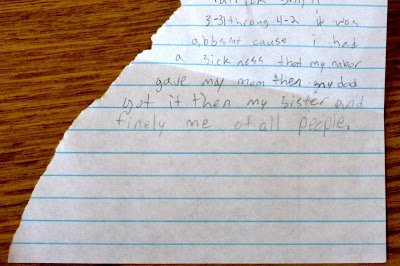 3-31 throug 4-2 it was
abbsent cause i had
a sickness that my nabor
gave my mom then my dad
got it then my sister and
finely me of all people.